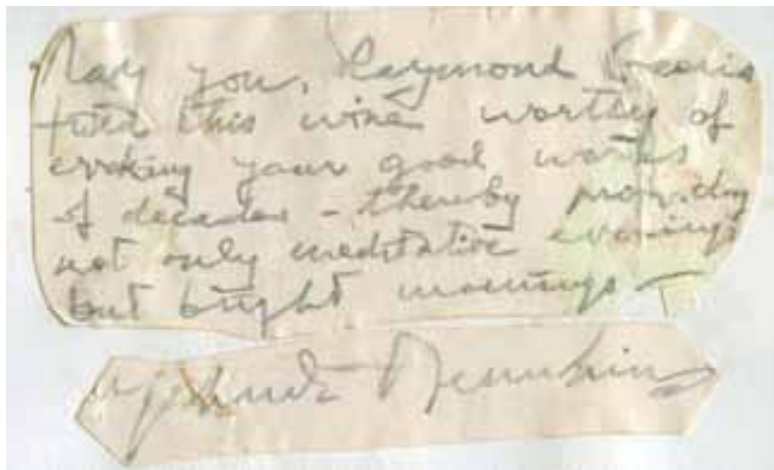 May you, Raymond
find this wine worthy of
evoking your good works
of decades - thereby providing
not only meditative evenings
but bright mornings -